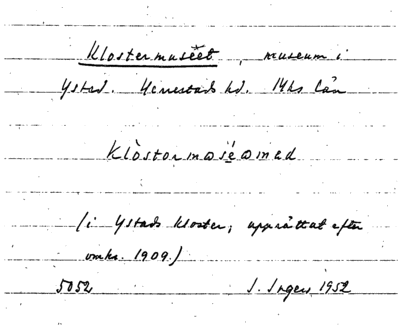 Klostermuséet, museum i
Ystad. Herrestads hd. Mhs län
Klòstormøséømed
(i Ystads kloster; upprättat efter
omkr. 1909.)
5052 I. Ingers 1952